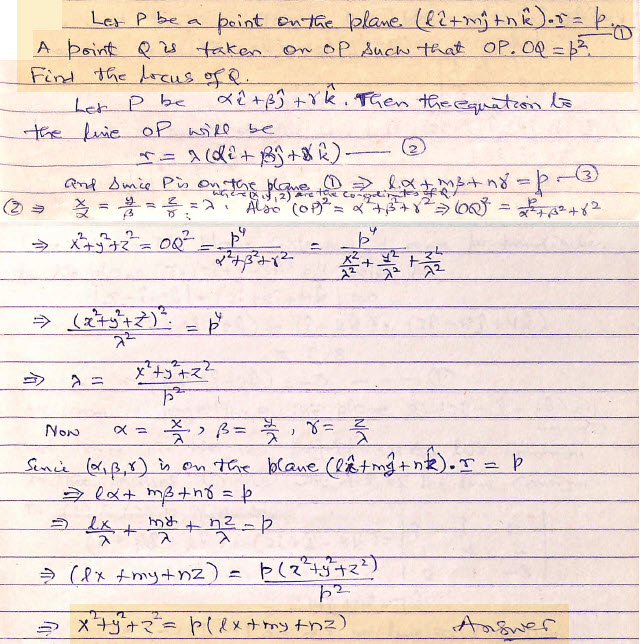 Let P be a point on the plane (lî+mĵ+nk̂)·r = p. ①
A point Q is taken on OP such that OP.OQ = p².
Find the locus of Q.
Let P be αî+βĵ+γk̂. Then the equation to
the line OP will be
r = λ(αî+βĵ+γk̂) — ②
and since P is on the plane ① ⇒ lα+mβ+nγ = p — ③
where (x,y,z) are the co-ordinates of Q
② ⇒ x/α = y/β = z/γ = λ, Also (OP)² = α²+β²+γ² ⇒ (OQ)² = p⁴/(α²+β²+γ²)
⇒ x²+y²+z² = OQ² = p⁴/(α²+β²+γ²) = p⁴/(x²/λ² + y²/λ² + z²/λ²)
⇒ (x²+y²+z²)²/λ² = p⁴
⇒ λ = (x²+y²+z²)/p²
Now α = x/λ, β = y/λ, γ = z/λ
Since (α,β,γ) is on the plane (lî+mĵ+nk̂)·r = p
⇒ lα+mβ+nγ = p
⇒ lx/λ + my/λ + nz/λ = p
⇒ (lx+my+nz) = p(x²+y²+z²)/p²
⇒ x²+y²+z² = p(lx+my+nz) Answer